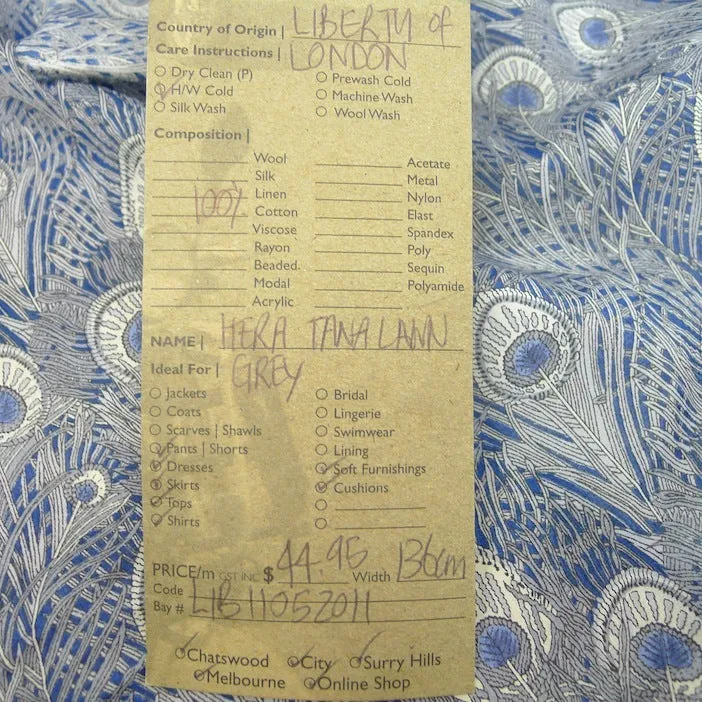 Country of Origin | LIBERTY of
Care Instructions | LONDON
Dry Clean (P) Prewash Cold
H/W Cold Machine Wash
Silk Wash Wool Wash
Composition |
Wool Acetate
Silk Metal
Linen Nylon
100% Cotton Elast
Viscose Spandex
Rayon Poly
Beaded. Sequin
Modal Polyamide
Acrylic
NAME | HERA TANA LAWN
Ideal For | GREY
Jackets Bridal
Coats Lingerie
Scarves | Shawls Swimwear
Pants | Shorts Lining
Dresses Soft Furnishings
Skirts Cushions
Tops
Shirts
PRICE/m GST INC $44.95 Width 136cm
Code
Bay # LIB11052011
Chatswood City Surry Hills
Melbourne Online Shop